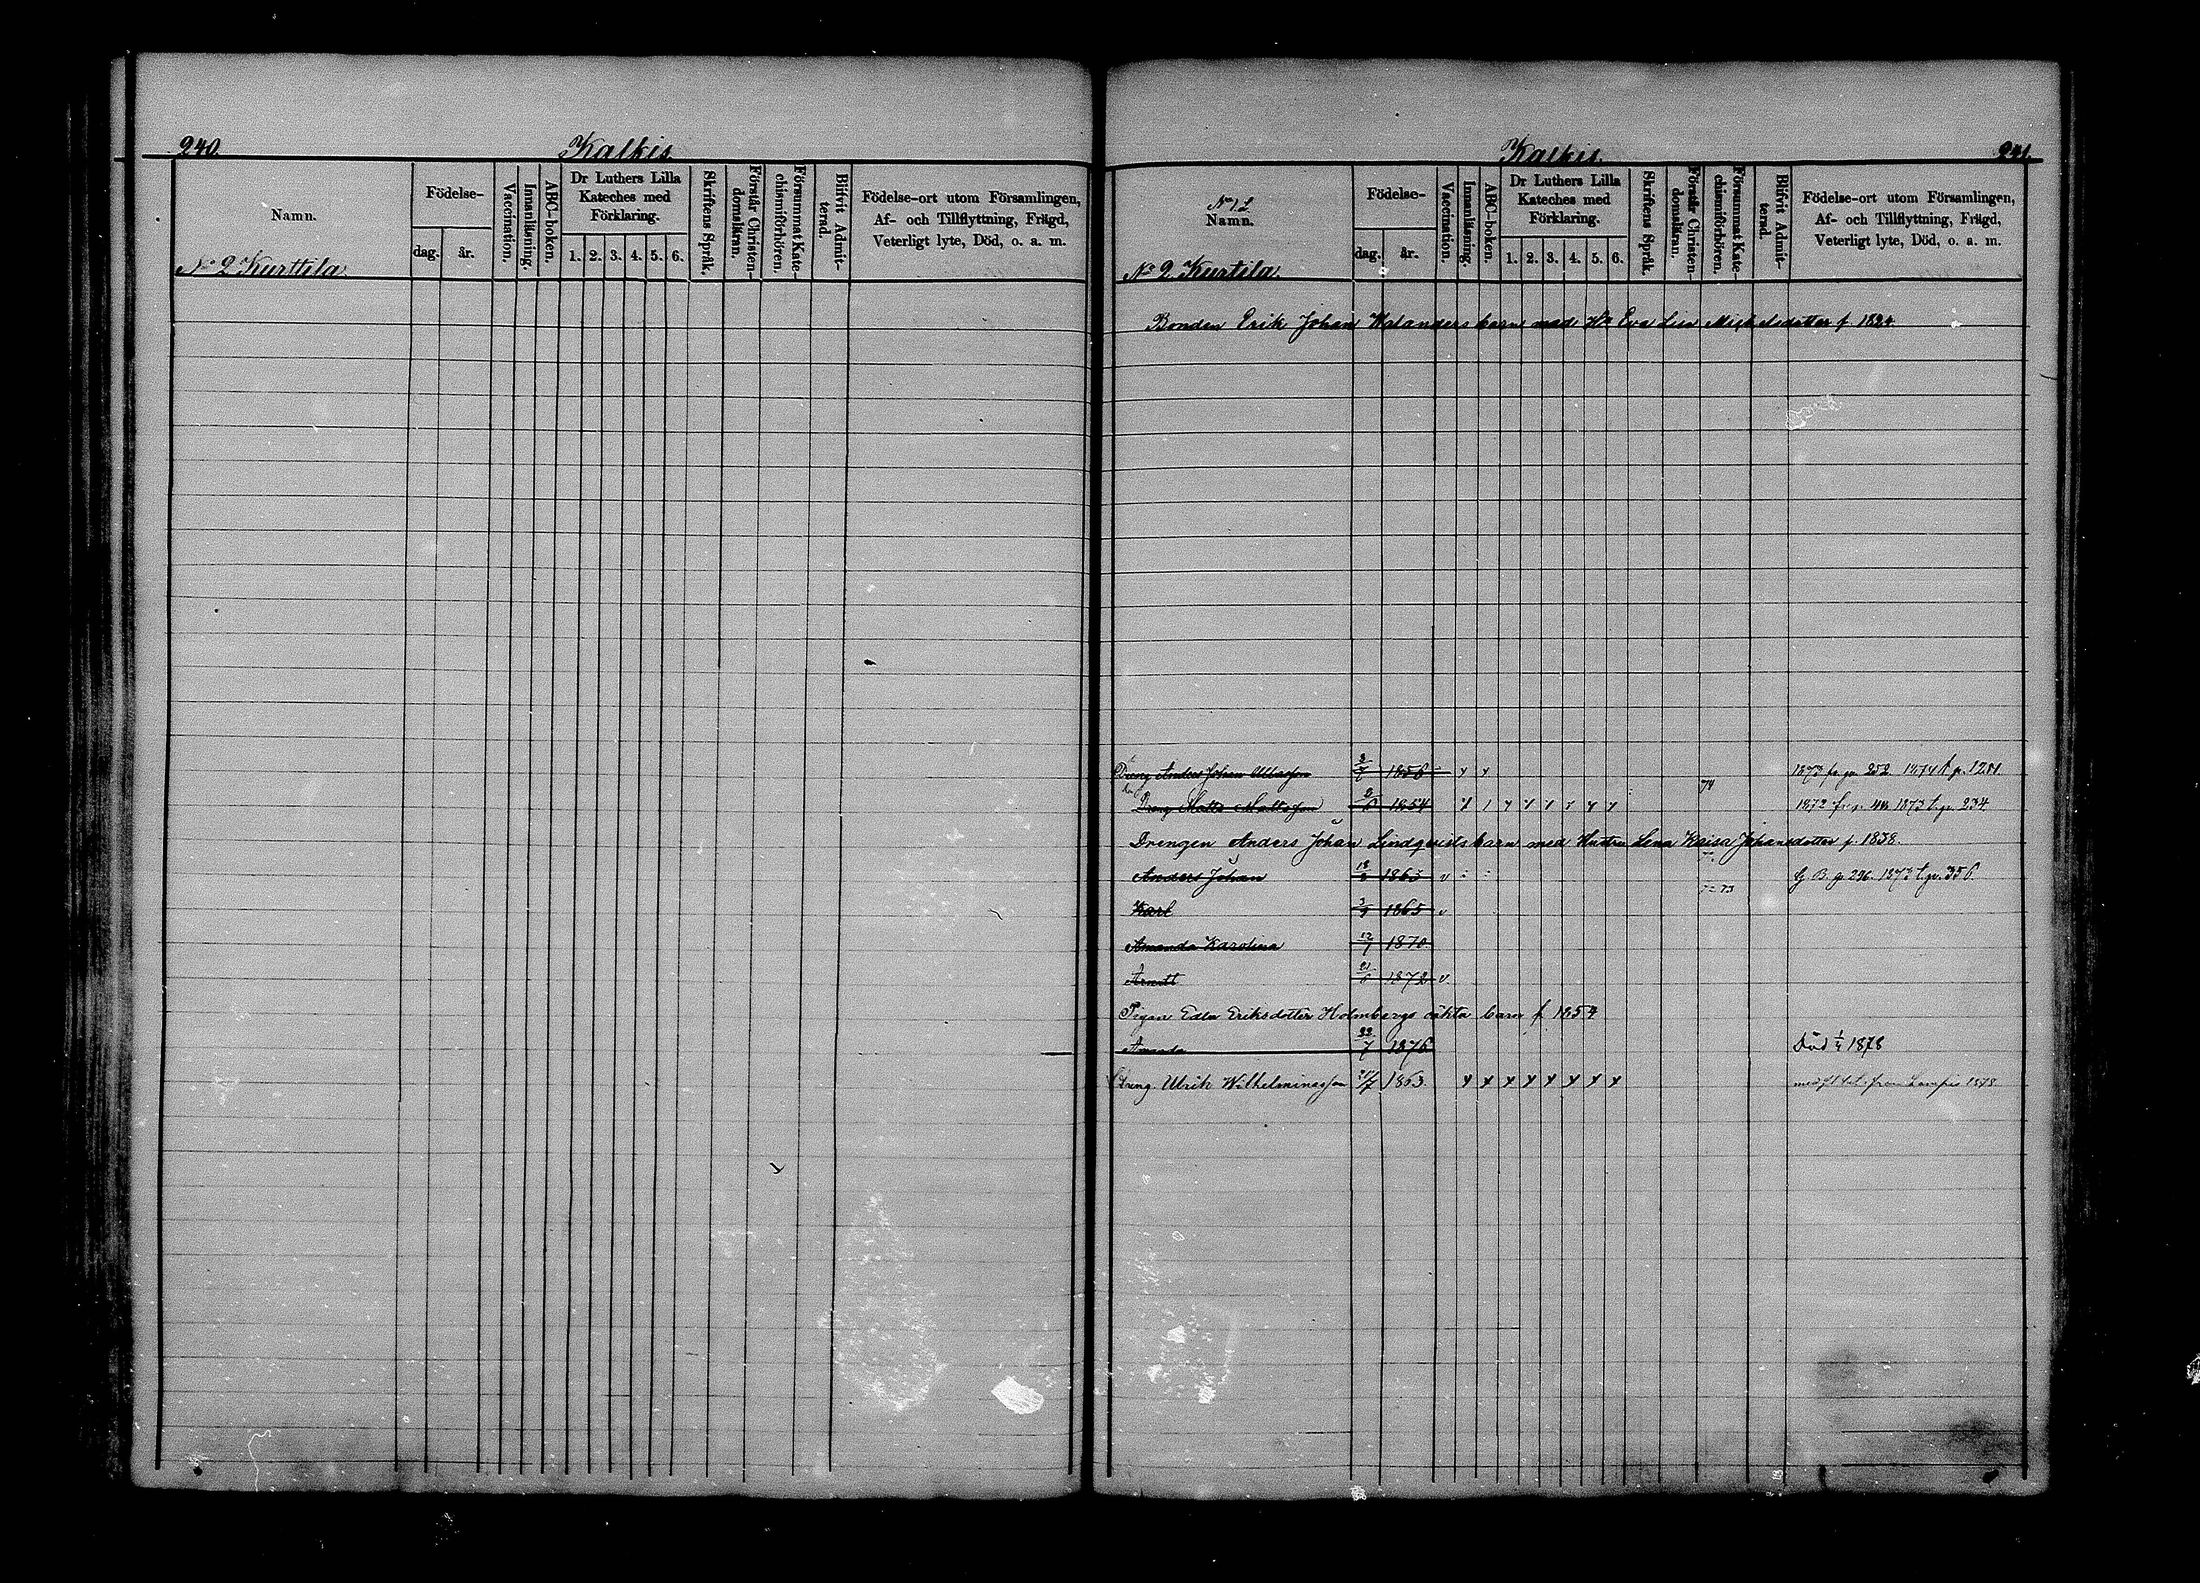 240. Kalkis.
Namn.
Födelse-
dag. år.
Vaccination.
Innanläsning.
ABC-boken.
Dr Luthers Lilla Kateches med Förklaring.
1. 2. 3. 4. 5. 6.
Skriftens Språk.
Förstår Christendomsläran.
Försummat Katechismiförhören.
Blifvit Admitterad.
Födelse-ort utom Församlingen,
Af- och Tillflyttning, Frägd,
Veterligt lyte, Död, o. a. m.
No 2 Kurttila
Kalkis. 241.
Namn.
Födelse-
dag. år.
Vaccination.
Innanläsning.
ABC-boken.
Dr Luthers Lilla Kateches med Förklaring.
1. 2. 3. 4. 5. 6.
Skriftens Språk.
Förstår Christendomsläran.
Försummat Katechismiförhören.
Blifvit Admitterad.
Födelse-ort utom Församlingen,
Af- och Tillflyttning, Frägd,
Veterligt lyte, Död, o. a. m.
No 2 Kurtila
Bonden Erik Johan Walanders barn med Hu Eva Lisa Mickelsdotter f. 1824
Dreng Anders Johan 1856 x x 74 1873 fr. p. 252
Dreng Matts Mattsson 1854 1872 fr. p. 1873 t. p. 234
Drengen Anders Johan Lindqvists barn med Hustru Lena Kaisa Johansdotter f. 1838.
Anders Johan 1863 v 72 73 p. 296. 1873 t. p. 356
Karl 1865 v
Amanda Karolina 12/1 1870
1872 v.
Pigan Edla Eriksdotter Holmbergs oäkta barn f 1854
Amanda 22/7 1876 Död 1/4 1878
Dreng. Ulrik Wilhelminasson 1863. x x x x x x x x från 1878